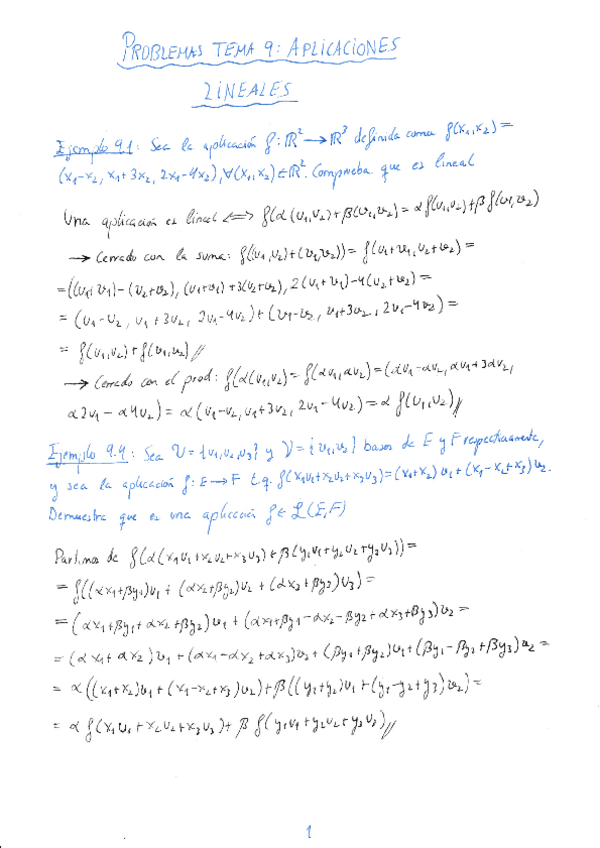 PROBLEMAS TEMA 9: APLICACIONES
LINEALES
Ejemplo 9.1: Sea la aplicación f: ℝ² → ℝ³ definida como f(x₁,x₂) =
(x₁-x₂, x₁+3x₂, 2x₁-4x₂), ∀(x₁,x₂)∈ℝ². Comprueba que es lineal
Una aplicación es lineal ⟺ f(α(u₁,u₂)+β(v₁,v₂) = α f(u₁,u₂)+β f(v₁,v₂)
→ Cerrado con la suma: f((u₁,u₂)+(v₁,v₂)) = f(u₁+v₁,u₂+v₂) =
= ((u₁+v₁)-(u₂+v₂), (u₁+v₁)+3(u₂+v₂), 2(u₁+v₁)-4(u₂+v₂) =
= (u₁-u₂, u₁+3u₂, 2u₁-4u₂)+(v₁-v₂, v₁+3v₂, 2v₁-4v₂) =
= f(u₁,u₂)+f(v₁,v₂)//
→ Cerrado con el prod: f(α(u₁,u₂) = f(αu₁,αu₂) = (αu₁-αu₂, αu₁+3αu₂,
α2u₁-α4u₂) = α(u₁-u₂,u₁+3u₂, 2u₁-4u₂) = α f(u₁,u₂)//
Ejemplo 9.4: Sea U = {u₁,u₂,u₃} y V = {v₁,v₂} bases de E y F respectivamente,
y sea la aplicación f: E→F t.q. f(x₁u₁+x₂u₂+x₃u₃) = (x₁+x₂)v₁+(x₁-x₂+x₃)v₂.
Demuestra que es una aplicación f∈ℒ(E,F)
Partimos de f(α(x₁u₁+x₂u₂+x₃u₃)+β(y₁u₁+y₂u₂+y₃u₃)) =
= f((αx₁+βy₁)u₁+(αx₂+βy₂)u₂+(αx₃+βy₃)u₃) =
= (αx₁+βy₁+αx₂+βy₂)v₁+(αx₁+βy₁-αx₂-βy₂+αx₃+βy₃)v₂ =
= (αx₁+αx₂)v₁+(αx₁-αx₂+αx₃)v₂+(βy₁+βy₂)v₁+(βy₁-βy₂+βy₃)v₂ =
= α((x₁+x₂)v₁+(x₁-x₂+x₃)v₂)+β((y₁+y₂)v₁+(y₁-y₂+y₃)v₂) =
= α f(x₁u₁+x₂u₂+x₃u₃)+β f(y₁u₁+y₂u₂+y₃u₃)//
1